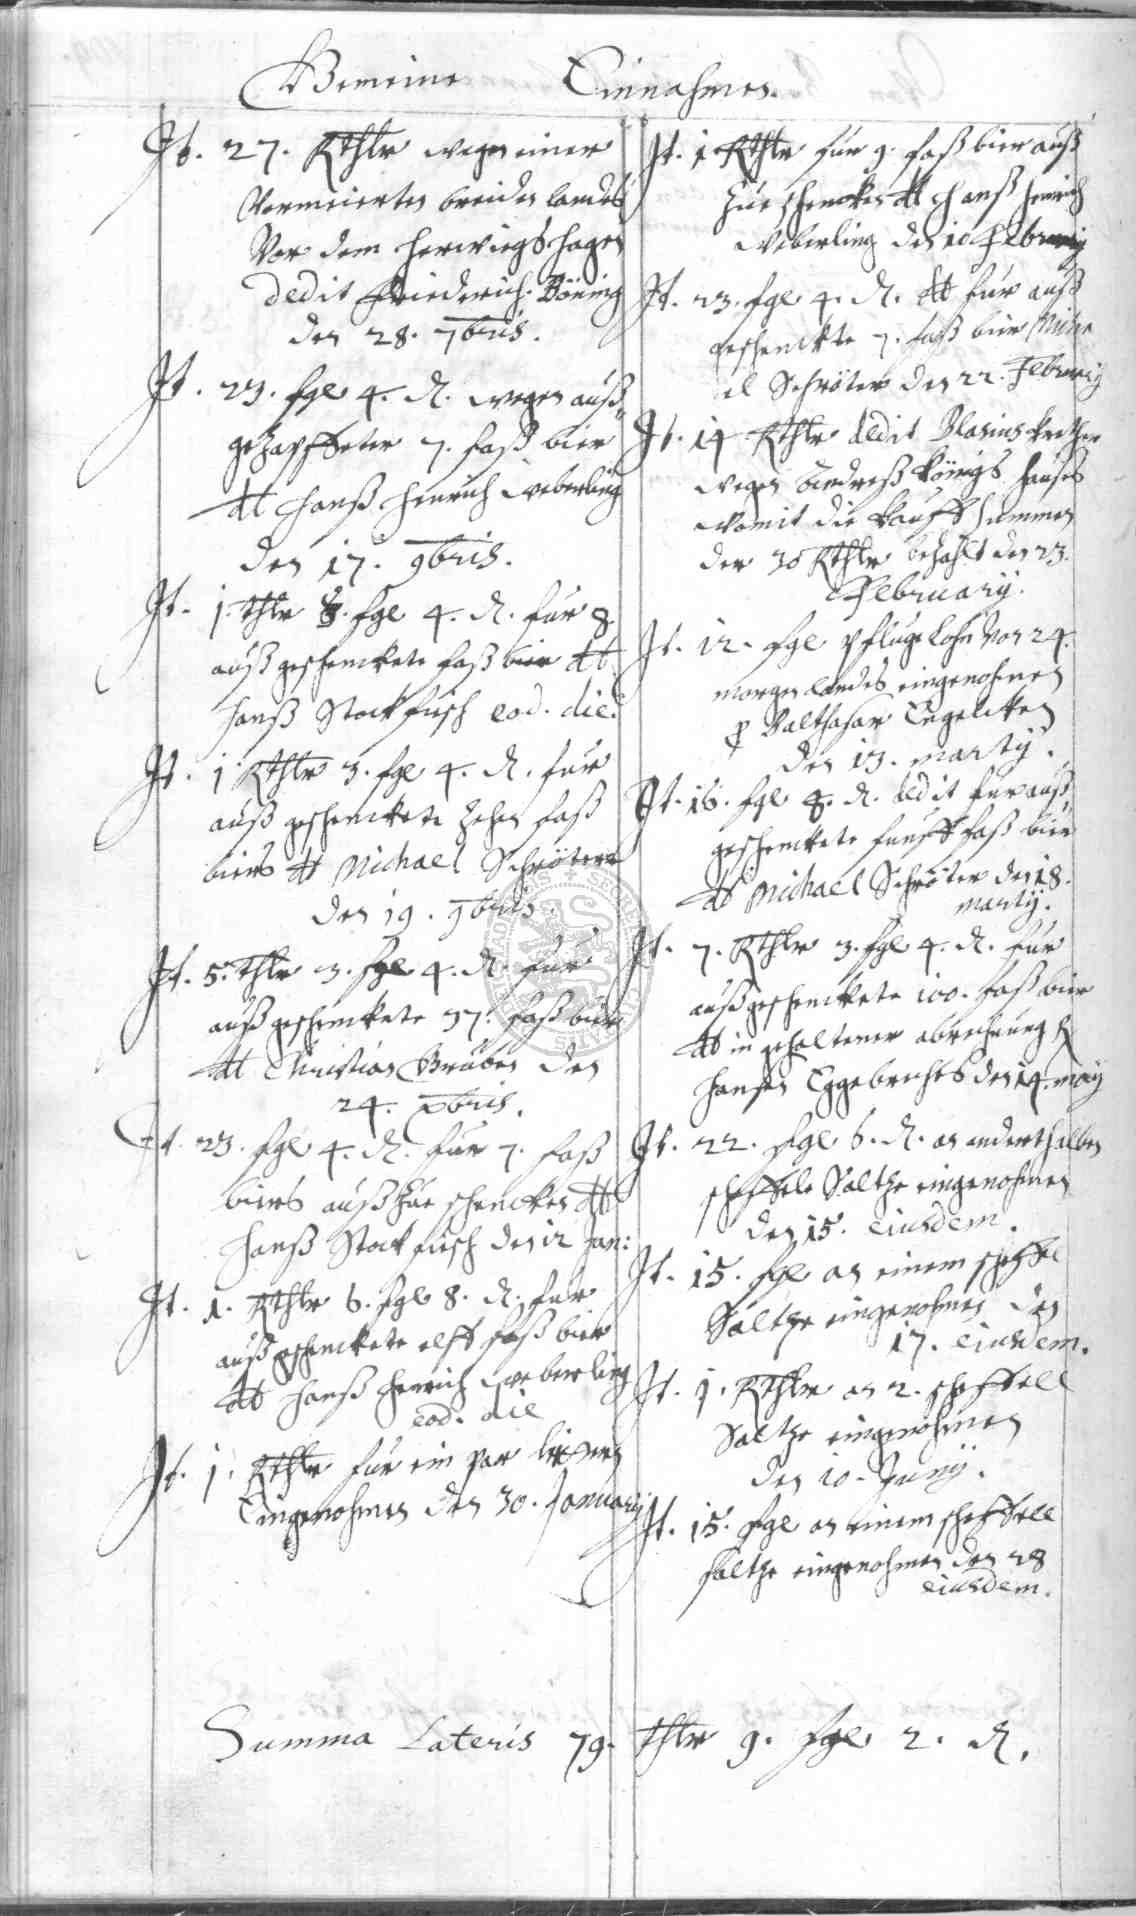 Gemeine Einnahmen.
It. 27. Rthlr wegen einer
Vermeierten breiden landes
Vor dem Herwiegshagen
dedit Friederich Böning
den 28. 7bris.
It. 23. fgl 4. d. wegen auß
gezapffeter 7. faß bier
dt Hanß Henrich Weberling
den 17. 9bris.
It. 1. thlr 3. fgl 4. d. fur 8.
außgeschenckete faß bier dt
Hanß Stockfisch eod. die.
It. 1 Rthlr 3. fgl 4. d. fur
auß geschenckete Zehen faß
biers dt Michael Schröter
den 19. 9bris.
It. 5. thlr 3. fgl 4. d. fur
außgeschenckete 37. faß bier
dt Christian Gruben den
24. xbris.
It. 23. fgl 4. d. fur 7. faß
biers außzue schencken dt
Hanß Stockfisch den 12 Jan:
It. 1. Rthlr 6. fgl 8. d. fur
außgeschenckete elff faß bier
dt Hanß Henrich Weberling
eod. die
It. 1. Rthlr fur ein par
Eingenohmen den 30. January
It. 1 Rthlr fur 9. faß bier auß
zue schencken dt Hanß Henrich
Weberling den 10 February
It. 23. fgl 4. d. dt fur auß
geschenckte 7. faß bier Micha
el Schröter den 22. February
It. 14 Rthlr dedit Blasius
wegen Andreß Königs Hauses
womit die Kauff Summen
der 30 Rthlr bezahlt den 23.
February.
It. 12. fgl pfluge lohn Von 24.
morgen landes eingenohmen
p Balthasar Engelcken
den 13. marty.
It. 16. fgl 8. d. dedit fur auß
geschenckete funff faß bier
dt Michael Schröter den 18.
marty.
It. 7. Rthlr 3. fgl 4. d. fur
außgeschenckete 100. faß bier
dt in gehaltener abrechnung
Hansen Eggebrechts den 14. may
It. 22. fgl 6. d. an anderthalben
scheffele Saltze eingenohmen
den 15. eiusdem.
It. 15. fgl an einem scheffel
Saltze eingenohmen den
17. eiusdem.
It. 1. Rthlr an 2. scheffell
Saltze eingenohmen
den 10. Juny.
It. 15. fgl an einem scheffell
saltze eingenohmen den 28
eiusdem.
Summa Lateris 79. thlr 9. fgl 2. d.